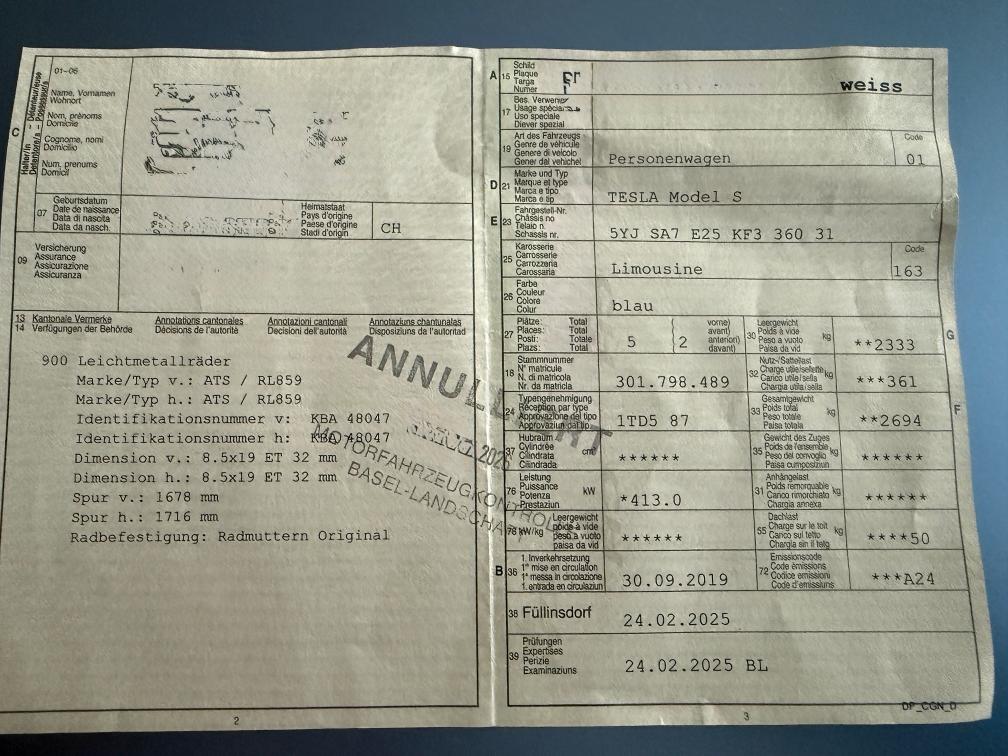 C
Halter/in – Détenteur/euse
Détentore/a – Possessur/a
01–06
Name, Vornamen
Wohnort
Nom, prénoms
Domicile
Cognome, nomi
Domicilio
Num, prenums
Domicil
07
Geburtsdatum
Date de naissance
Data di nascita
Data da nasch.
Heimatstaat
Pays d'origine
Paese d'origine
Stadi d'origin
CH
09
Versicherung
Assurance
Assicurazione
Assicuranza
13 Kantonale Vermerke Annotations cantonales Annotazioni cantonali Annotaziuns chantunalas
14 Verfügungen der Behörde Décisions de l'autorité Decisioni dell'autorità Disposiziuns da l'autoritad
900 Leichtmetallräder
Marke/Typ v.: ATS / RL859
Marke/Typ h.: ATS / RL859
Identifikationsnummer v: KBA 48047
Identifikationsnummer h: KBA 48047
Dimension v.: 8.5x19 ET 32 mm
Dimension h.: 8.5x19 ET 32 mm
Spur v.: 1678 mm
Spur h.: 1716 mm
Radbefestigung: Radmuttern Original
ANNULLIERT
MOTORFAHRZEUGKONTROLLE
BASEL-LANDSCHAFT
2
A 15
Schild
Plaque
Targa
Numer
weiss
17
Bes. Verwend
Usage spécial
Uso speciale
Diever spezial
19
Art des Fahrzeugs
Genre de véhicule
Genere di veicolo
Gener dal vehichel
Personenwagen
Code
01
D 21
Marke und Typ
Marque et type
Marca e tipo
Marca e tip
TESLA Model S
E 23
Fahrgestell-Nr.
Châssis no
Telaio n.
Schassis nr.
5YJ SA7 E25 KF3 360 31
25
Karosserie
Carrosserie
Carrozzeria
Carossaria
Limousine
Code
163
26
Farbe
Couleur
Colore
Colur
blau
27
Plätze: Total
Places: Total
Posti: Totale
Plazs: Total
5
vorne)
avant)
anteriori)
davant)
2
30
Leergewicht
Poids à vide
Peso a vuoto
Paisa da vid
kg
**2333
G
18
Stammnummer
N° matricule
N. di matricola
Nr. da matricla
301.798.489
32
Nutz-/Sattellast
Charge utile/sellette
Carico utile/sella
Chargia útila/sella
kg
***361
24
Typengenehmigung
Réception par type
Approvazione del tipo
Approvaziun dal tip
1TD5 87
33
Gesamtgewicht
Poids total
Peso totale
Paisa totala
kg
**2694
F
37
Hubraum
Cylindrée
Cilindrata
Cilindrada
cm³
******
35
Gewicht des Zuges
Poids de l'ensemble
Peso del convoglio
Paisa cumposiziun
kg
******
76
Leistung
Puissance
Potenza
Prestaziun
kW
*413.0
31
Anhängelast
Poids remorquable
Carico rimorchiato
Chargia annexa
kg
******
78 kW/kg
Leergewicht
poids à vide
peso a vuoto
paisa da vid
******
55
Dachlast
Charge sur le toit
Carico sul tetto
Chargia sin il tetg
kg
****50
B 36
1. Inverkehrsetzung
1re mise en circulation
1a messa in circolazione
1. entrada en circulaziun
30.09.2019
72
Emissionscode
Code émissions
Codice emissioni
Code d'emissiuns
***A24
38 Füllinsdorf
24.02.2025
39
Prüfungen
Expertises
Perizie
Examinaziuns
24.02.2025 BL
DP_CGN_D
3